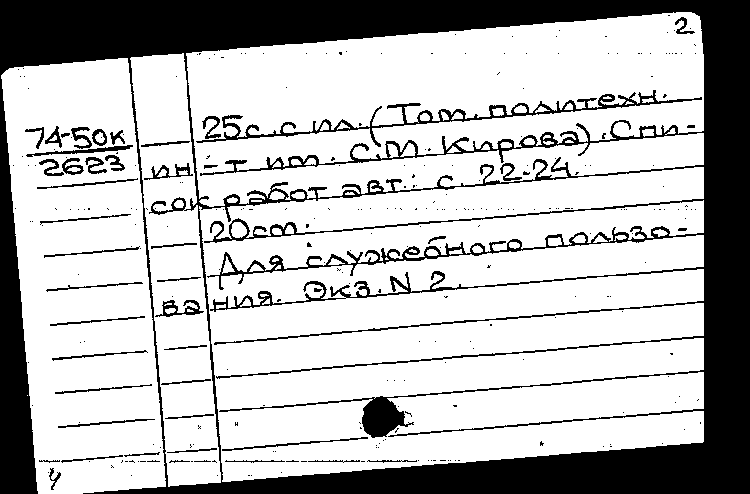 2
74-50к
2623
25с. с ил. (Том. политехн.
ин-т им. С.М. Кирова). Спи-
сок работ авт.: с. 22-24.
20см.
Для служебного пользо-
вания. Экз. N 2.